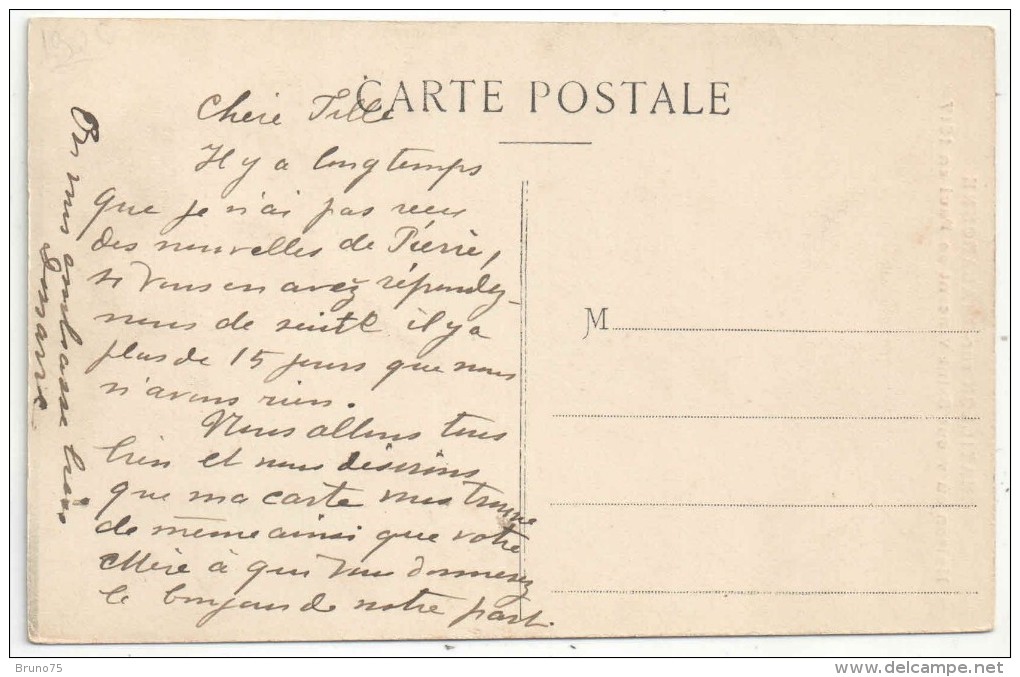 CARTE POSTALE
Chère Fille
Il y a longtemps
que je n'ai pas reçu
des nouvelles de Pierre,
si vous en avez répondez-
nous de suite il y a
plus de 15 jours que nous
n'avons rien.
Nous allons tous
bien et nous désirons
que ma carte vous trouve
de même ainsi que votre
Mère à qui vous donnerez
le bonjour de notre part.
vous embrasse bien
M
Bruno75
www.delcampe.net